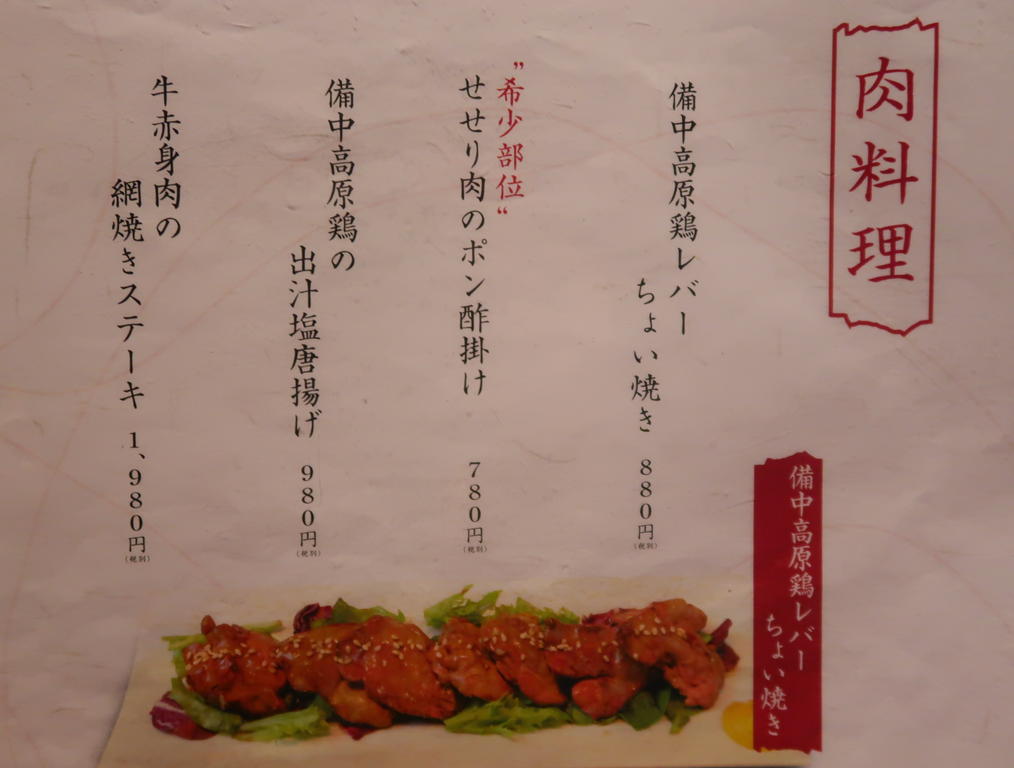 肉料理
備中高原鶏レバー
ちょい焼き 880円
(税別)
”希少部位“
せせり肉のポン酢掛け 780円
(税別)
備中高原鶏の
出汁塩唐揚げ 980円
(税別)
牛赤身肉の
網焼きステーキ 1、980円
(税別)
備中高原鶏レバー
ちょい焼き